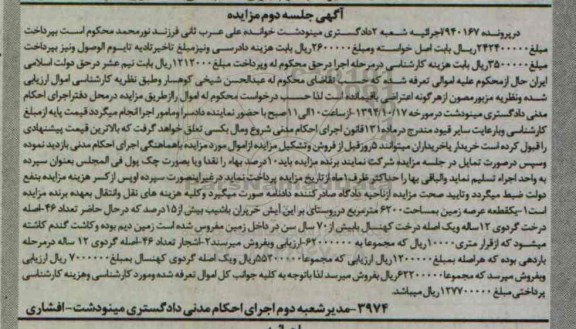 آگهی جلسه دوم مزایده
درپرونده ۹۴۰۱۶۷ اجرائیه شعبه ۲دادگستری مینودشت خوانده علی عرب ثانی فرزند نورمحمد محکوم است بپرداخت
مبلغ۲۴۲۴۰۰۰۰۰ریال بابت اصل خواسته ومبلغ۲۶۰۰۰۰۰ریال بابت هزینه دادرسی ونیزمبلغ تاخیرتادیه تایوم الوصول ونیز بپرداخت
مبلغ۳۵۰۰۰۰۰ریال بابت هزینه کارشناسی درمرحله اجرا درحق محکوم له وپرداخت مبلغ۱۲۱۲۰۰۰۰ریال بابت نیم عشر درحق دولت اسلامی
ایران حال ازمحکوم علیه اموالی تعرفه شده که حسب تقاضای محکوم له عبدالحسن شیخی کوهسار وطبق نظریه کارشناسی اموال ارزیابی
شده ونظریه مزبورمصون ازهرگونه اعتراضی باقیمانده است لذا حسب درخواست محکوم له اموال رااز طریق مزایده درمحل دفتراجرای احکام
مدنی دادگستری مینودشت درمورخه ۱۳۹۴/۱۰/۱۷-ازساعت ۱۰الی۱۱صبح با حضور نماینده دادسرا ومامور اجراانجام میگردد قیمت پایه ازمبلغ
کارشناسی وبارعایت سایر قیود مندرج درماده۱۳۱قانون اجرای احکام مدنی شروع ومال بکسی تعلق خواهد گرفت که بالاترین قیمت پیشنهادی
را قبول کرده است خریدار یاخریداران میتوانند ۵روزقبل از فروش وتشکیل مزایده ازاموال مورد مزایده باهماهنگی اجرای احکام مدنی بازدید نموده
وسپس درصورت تمایل در جلسه مزایده شرکت نمایند برنده مزایده باید۱۰درصد بهاء را نقدا ویا بصورت چک پول فی المجلس بعنوان سپرده
به واحد اجراء تسلیم نماید والباقی بها را حداکثر ظرف۱ماه ازتاریخ مزایده پرداخت نماید درغیراینصورت سپرده اوپس ازکسر هزینه مزایده بنفع
دولت ضبط میگردد وتایید صحت مزایده ازناحیه دادگاه صادرکننده دادنامه صورت میگیرد وکلیه هزینه های نقل وانتقال بعهده برنده مزایده
است ۱-یکقطعه عرصه زمین بمساحت ۶۲۰۰ مترمربع درروستای بر این آیش خرپران باشیب بیش از۱۵درصد که درحال حاضر تعداد ۴۶-اصله
درخت گردوی ۱۲ساله ویک اصله درخت کهنسال بابیش از ۷۰ سال سن در داخل زمین مفروس شده است زمین دیم بوده وکاشت گندم کاشته
میشود که ازقرار متری۱۰۰۰۰ریال که مجموعا به ۶۲۰۰۰۰۰۰-ارزیابی وبفروش میرسند۲-اشجار تعداد ۴۶-اصله گردوی ۱۲ ساله درمرحله
باردهی بوده که هراصله بمبلغ ۱۲۰۰۰۰۰ریال ارزیابی که مجموعا۵۵۲۰۰۰۰۰ریال ویک اصله گردوی کهنسال بمبلغ۷۰۰۰۰۰۰ ریال ارزیابی
وبفروش میرسد که مجموعا۶۲۲۰۰۰۰۰ریال بفروش میرسد لذا باتوجه به کلیه جوانب کل اموال تعرفه شده ومورد کارشناسی وهزینه کارشناسی
پرداختی مبلغ ۱۲۷۷۰۰۰۰۰ ریال میباشد.
۳۹۷۴-مدیر شعبه دوم اجرای احکام مدنی دادگستری مینودشت-افشاری